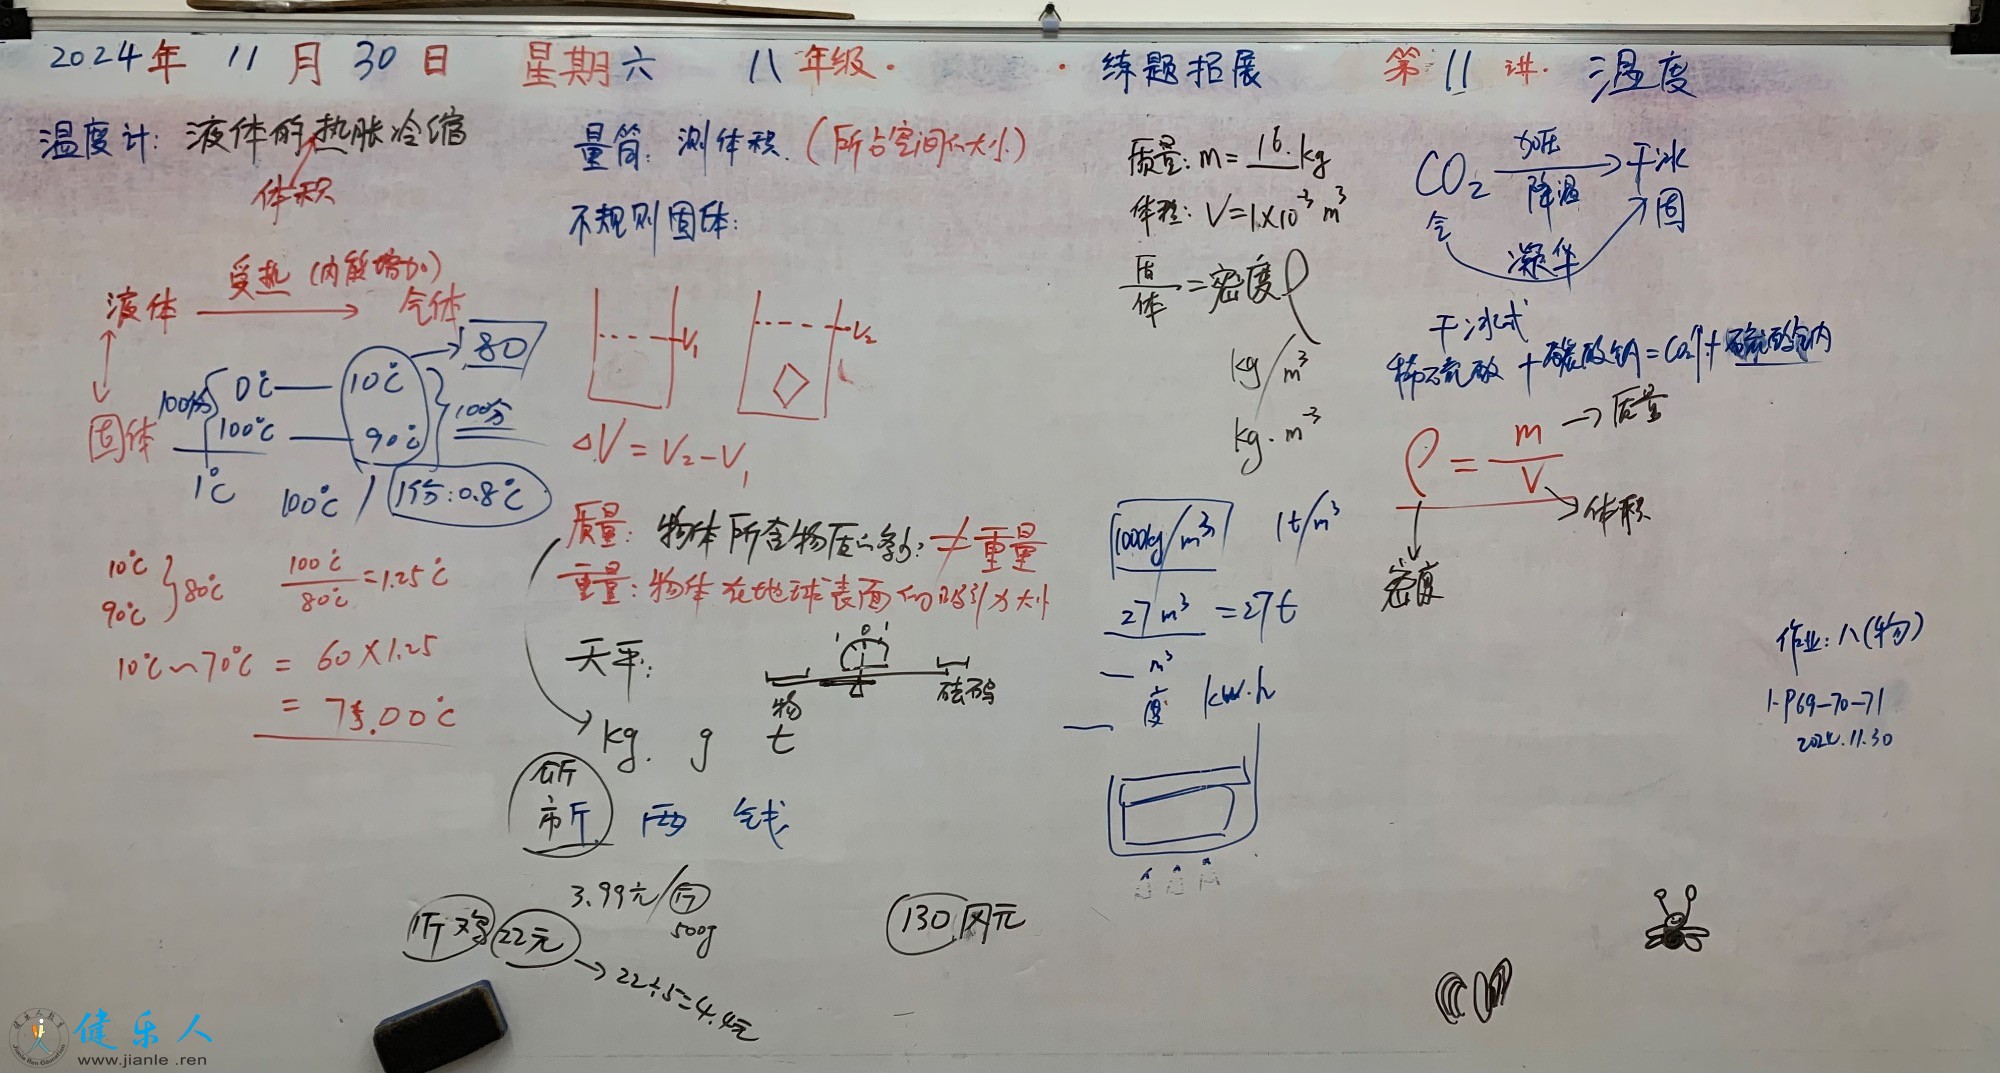 2024年 11月30日 星期六 八年级· ·练题拓展 第11讲· 温度
温度计: 液体的热胀冷缩
体积
受热(内能增加)
液体 气体
固体
80
100份 0℃ 10℃
100℃ 90℃ 100份
1℃
100℃ / 1份:0.8℃
10℃
90℃ 80℃
100℃/80℃ = 1.25℃
10℃~70℃ = 60×1.25
= 75.00℃
量筒: 测体积.(所占空间的大小)
不规则固体:
V1 V2
△V = V2-V1
质量: 物体所含物质的多少 ≠ 重量
重量: 物体在地球表面的吸引力大小
天平:
物 砝码
kg. g t
公斤
市斤 两 钱
3.99元/斤
500g
22元
→22÷5=4.4元
130 元
质量: m= 16. kg
体积: V=1×10⁻³ m³
质/体 = 密度ρ
kg/m³
kg·m⁻³
1000kg/m³ 1t/m³
27m³ = 27t
m³
度 kw·h
CO2 加压 降温 干冰
气 固
凝华
干冰式
稀硫酸 + 碳酸钠 = CO2↑ + 硫酸钠
ρ = m/V
质量
体积
密度
作业: 八(物)
1-P69-70-71
2024.11.30
健乐人
www.jianle.ren